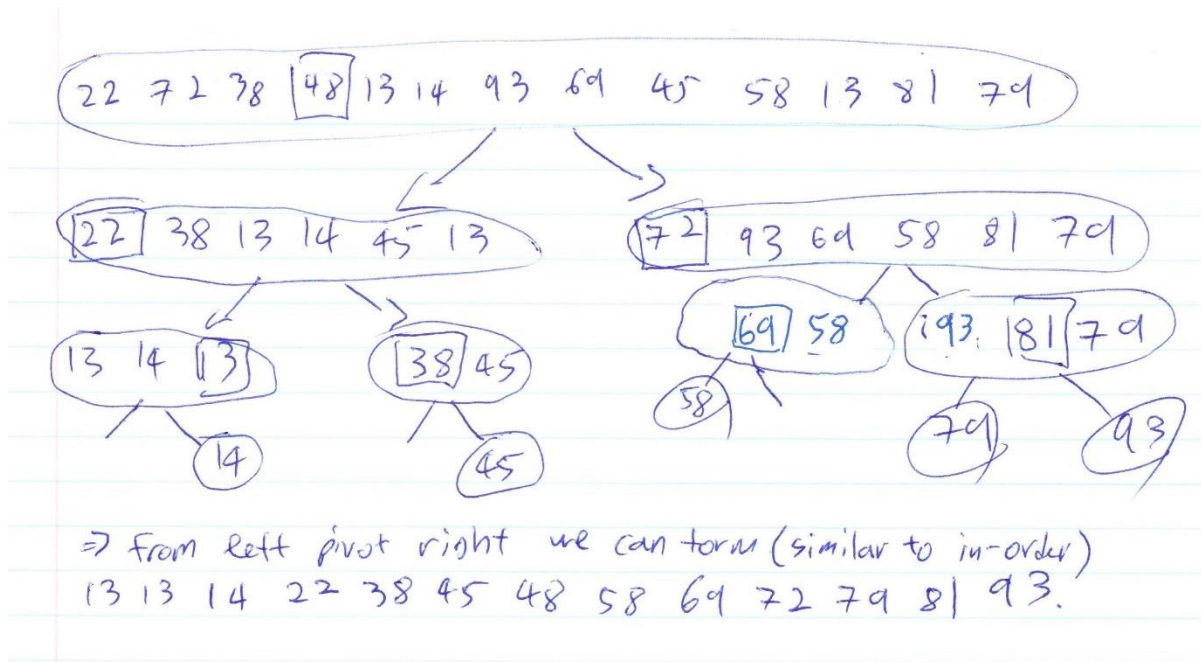 22 72 38 48 13 14 93 69 45 58 13 81 79
22 38 13 14 45 13 72 93 69 58 81 79
13 14 13 38 45 69 58 93 81 79
14 45 58 79 93
=> from left pivot right we can form (similar to in-order)
13 13 14 22 38 45 48 58 69 72 79 81 93.